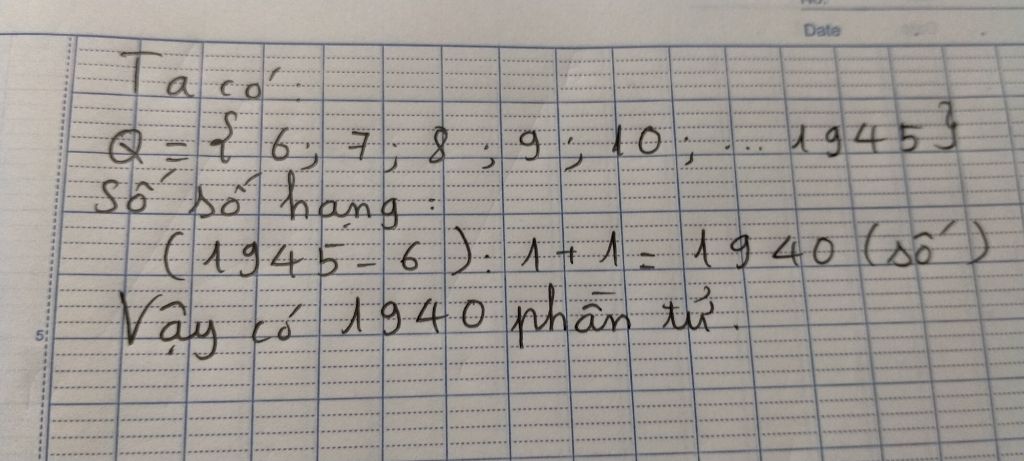 Date
Ta có:
Q = { 6; 7; 8; 9; 10; ... 1945}
số số hạng:
(1945 - 6): 1 + 1 = 1940 (số)
Vậy có 1940 phần tử.
5